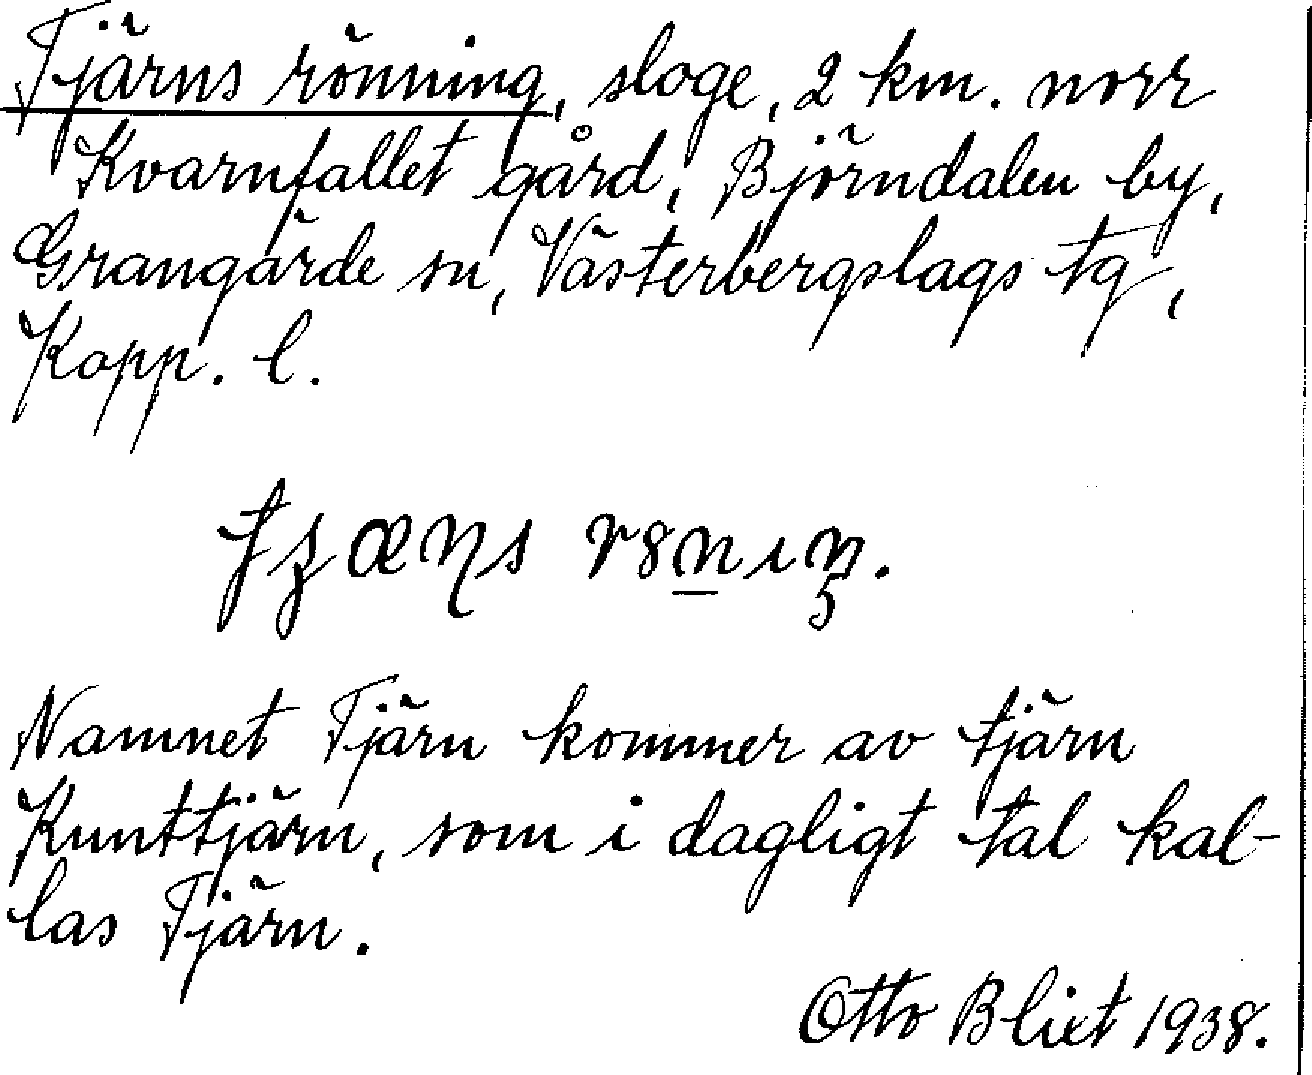 Tjärns rönning, sloge, 2 km. norr
Kvarnfallet gård, Björndalen by,
Grangärde sn, Västerbergslags tg,
Kopp. l.
Namnet Tjärn kommer av tjärn
Knuttjärn, som i dagligt tal kal-
las Tjärn.
Otto Blixt 1938.